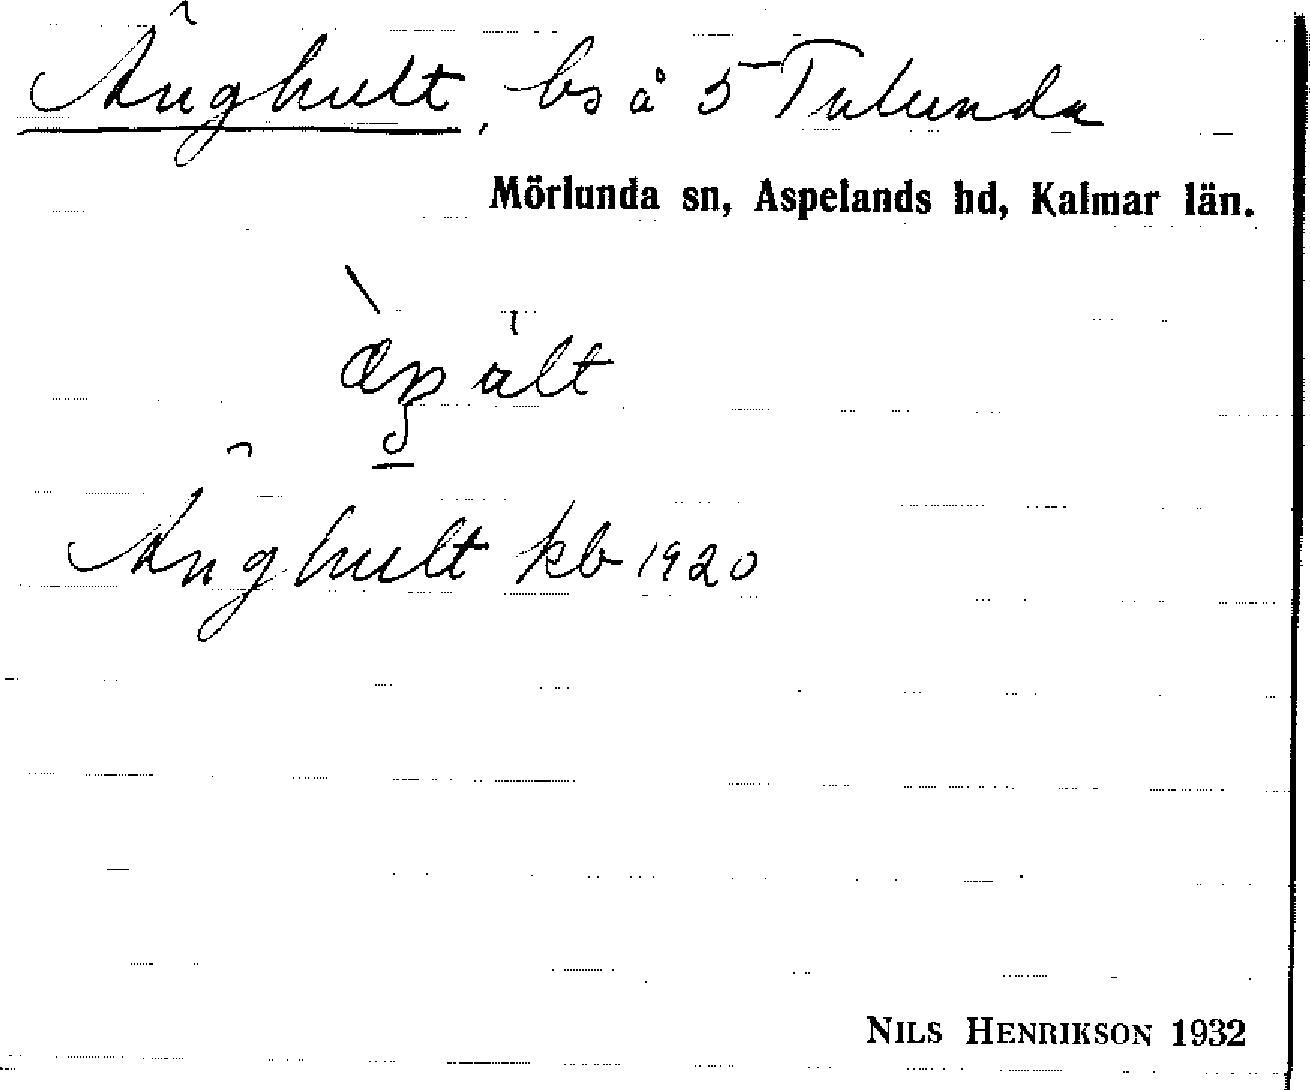 Änghult, bs å 5 Tulunda
Mörlunda sn, Aspelands hd, Kalmar län.
Änghult kb 1920
NILS HENRIKSON 1932